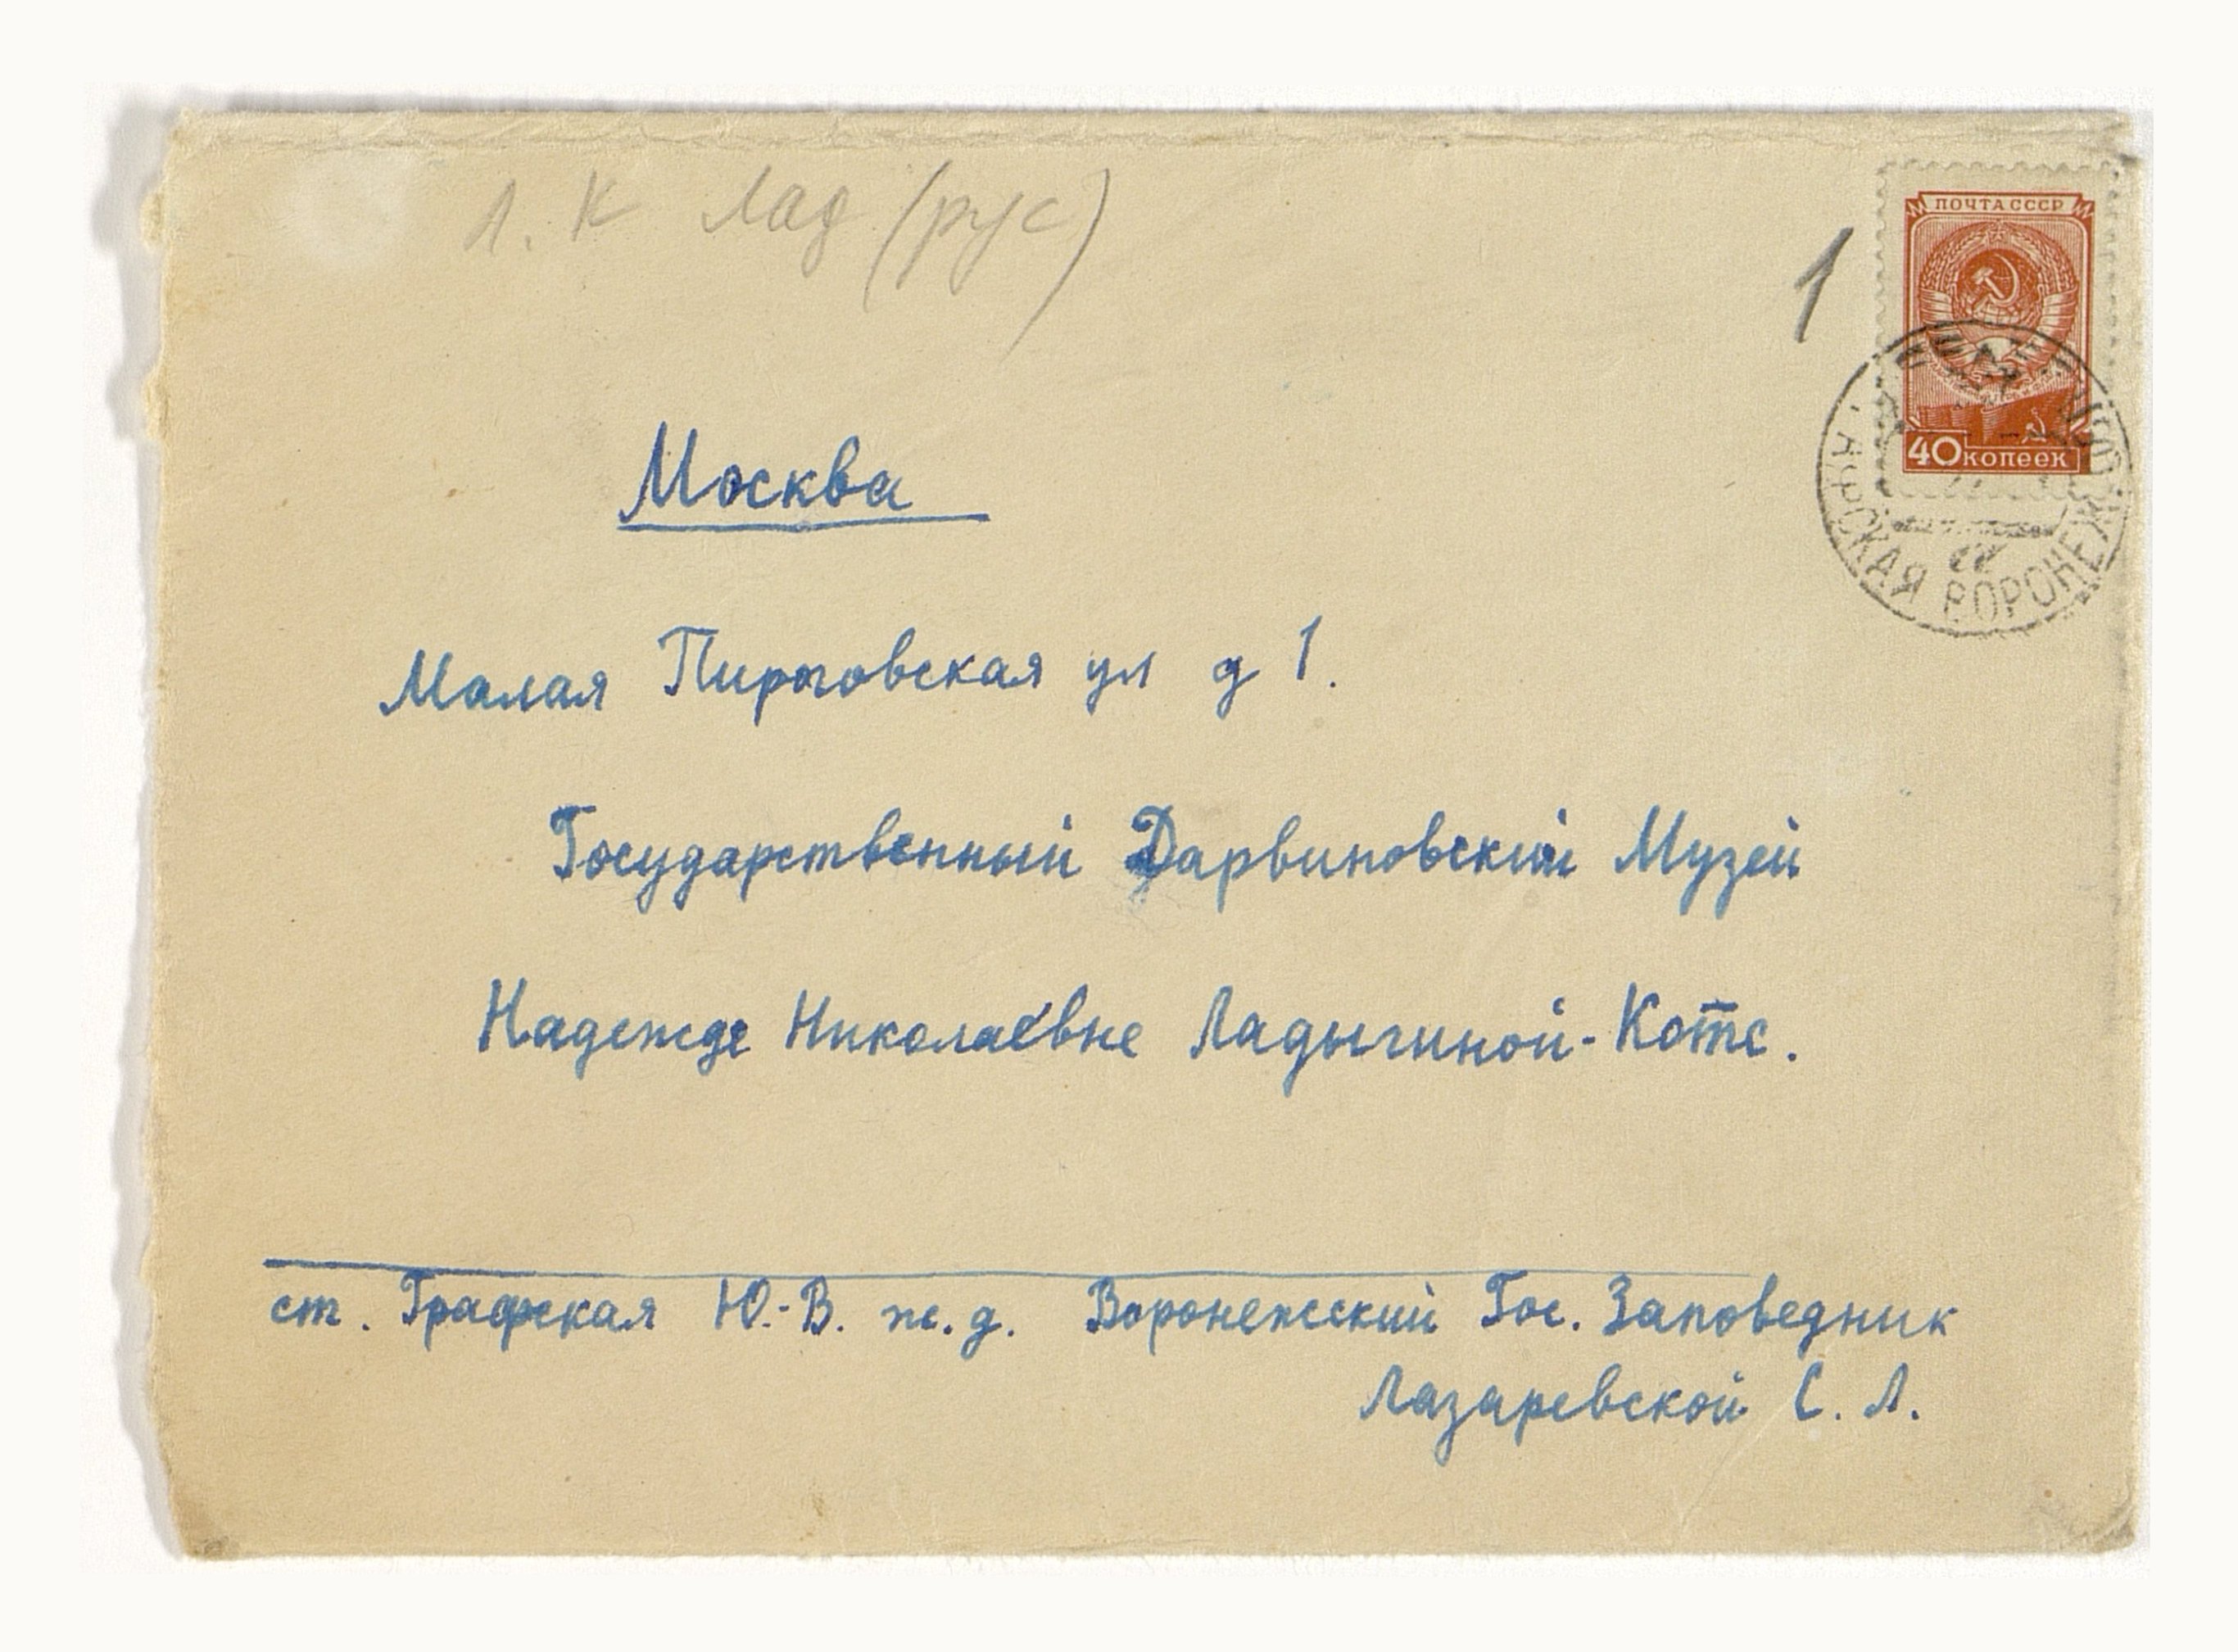 Л. К Лад (рус)
1
ПОЧТА СССР
40 копеек
ВОРОНЕЖ
Москва
Малая Пироговская ул д 1.
Государственный Дарвиновский Музей
Надежде Николаевне Ладыгиной-Котс.
ст. Графская Ю.-В. ж.д. Воронежский Гос. Заповедник
Лазаревской С. Л.